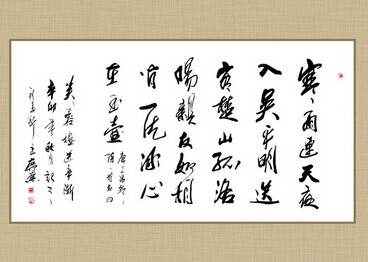 寒雨連天夜
入吴平明送
客楚山孤洛
陽親友如相
問一片冰心
在玉壺
芙蓉楼送辛漸
辛卯年秋月